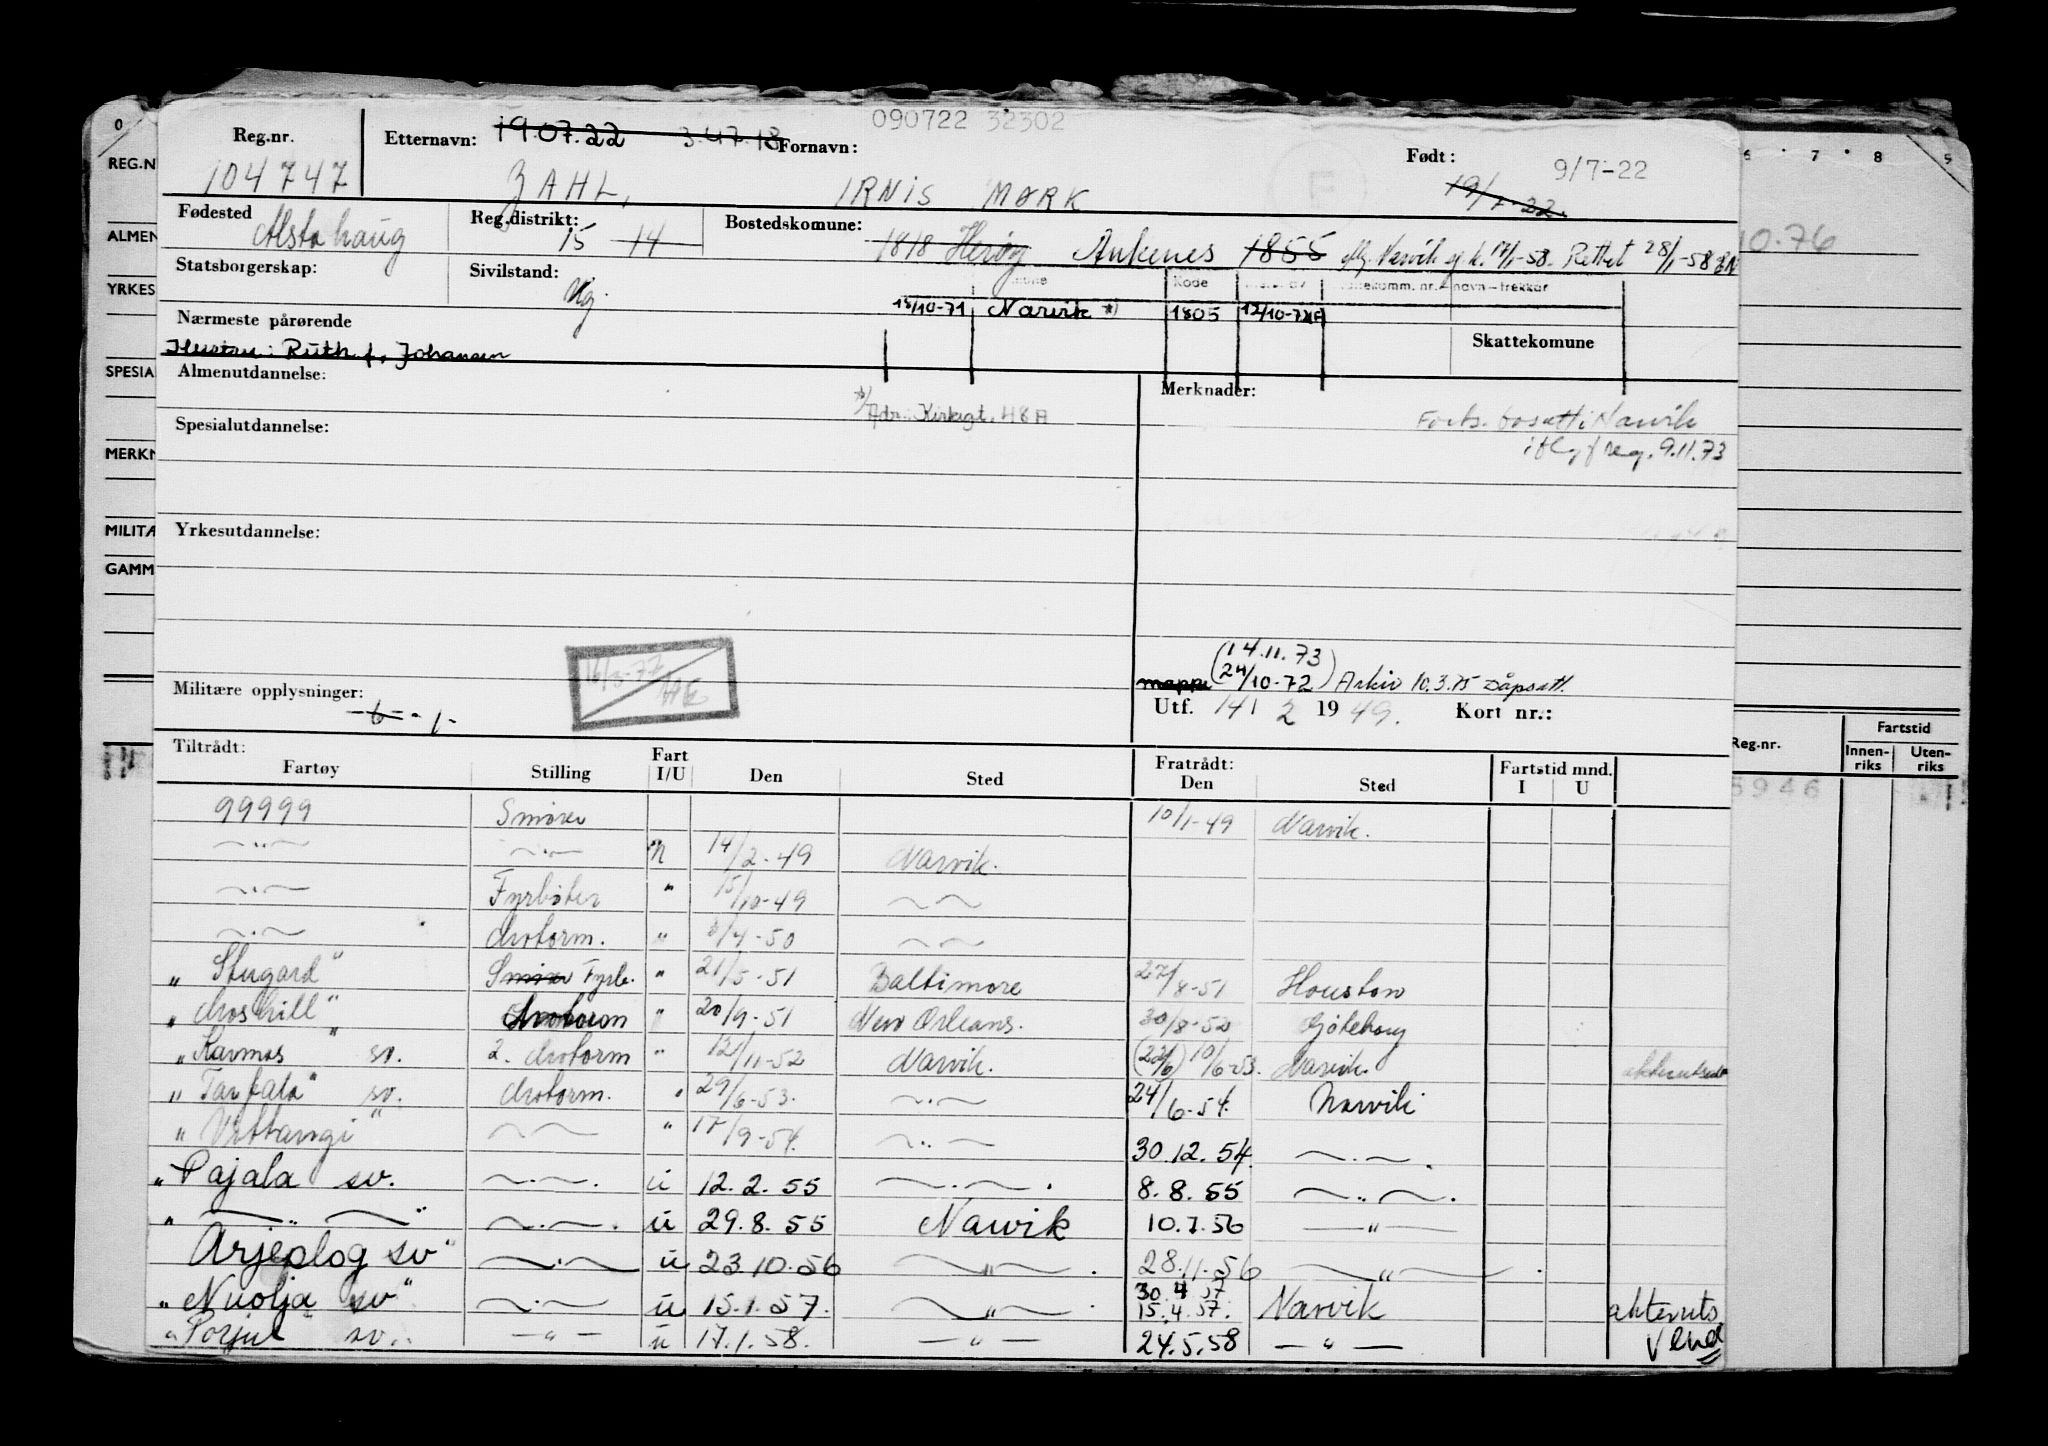 090722 32302
Reg.nr. Etternavn: 19.07.22 3.47.18 Fornavn: Født: 9/7-22
104747 ZAHL, IRNIS MØRK 19/7-22
Fødested Alstahaug Reg.distrikt: 15 14 Bostedskomune: 1818 Herøy Ankenes 1855 Narvik 17/1-58. Rettet 28/1-58
Statsborgerskap: Sivilstand: Ug. Kode
13/10-71 Narvik *) 1805 12/10-72
Nærmeste pårørende Skattekomune
Hustru: Ruth f. Johansen
Almenutdannelse: Merknader:
*) Adr.: Kirkegt. 48A Forts. bosatt i Narvik
Spesialutdannelse: iflg. f reg. 9.11.73
Yrkesutdannelse:
16/3-77
(14.11.73
mappe 24/10-72) Arkiv 10.3.75 Dåpsatt.
Militære opplysninger: -6- -1- Utf. 14/2 1949. Kort nr.:
Tiltrådt: Fart Fratrådt: Fartstid mnd.
Fartøy Stilling I/U Den Sted Den Sted I U
99999 Smører 10/1-49 Narvik.
—"— —"— N 14/2-49 Narvik.
—"— Fyrbøter " 15/10-49 —"—
—"— Motorm. " /4-50 —"—
" Stugard" Smører Fyrb. " 21/5-51 Baltimore 27/8-51 Houston
" Moshill" Motorm " 20/9-51 New Orleans. 30/8-52 Göteborg
" Kaunas" sv. 2. Motorm " 12/11-52 Narvik. (22/6) 10/6-53. Narvik. akterutseilt
" Tarfala" sv. Motorm. " 29/6-53. —"— 24/6-54. Narvik
" Vittangi" —"— " 17/9-54. —"— 30.12.54. —"—
" Pajala sv. —"— u 12.2.55 —"— 8.8.55 —"—
" —"— " —"— u 29.8.55 Narvik 10.7.56 —"—
Arjeplog sv" —"— u 23.10.56 —"— 28.11.56 —"—
" Nuolja sv" —"— u 15.1.57. —"— 30.4.57 15.4.57. Narvik akteruts
" Porjus" sv. —"— u 17.1.58. —"— 24.5.58 —"— Vend
0
REG.N
ALMEN
YRKES
SPESIAL
MERKN
MILITÆ
GAMM
7 8 9
10.76
Reg.nr. Fartstid
Innen-riks Uten-riks
5946